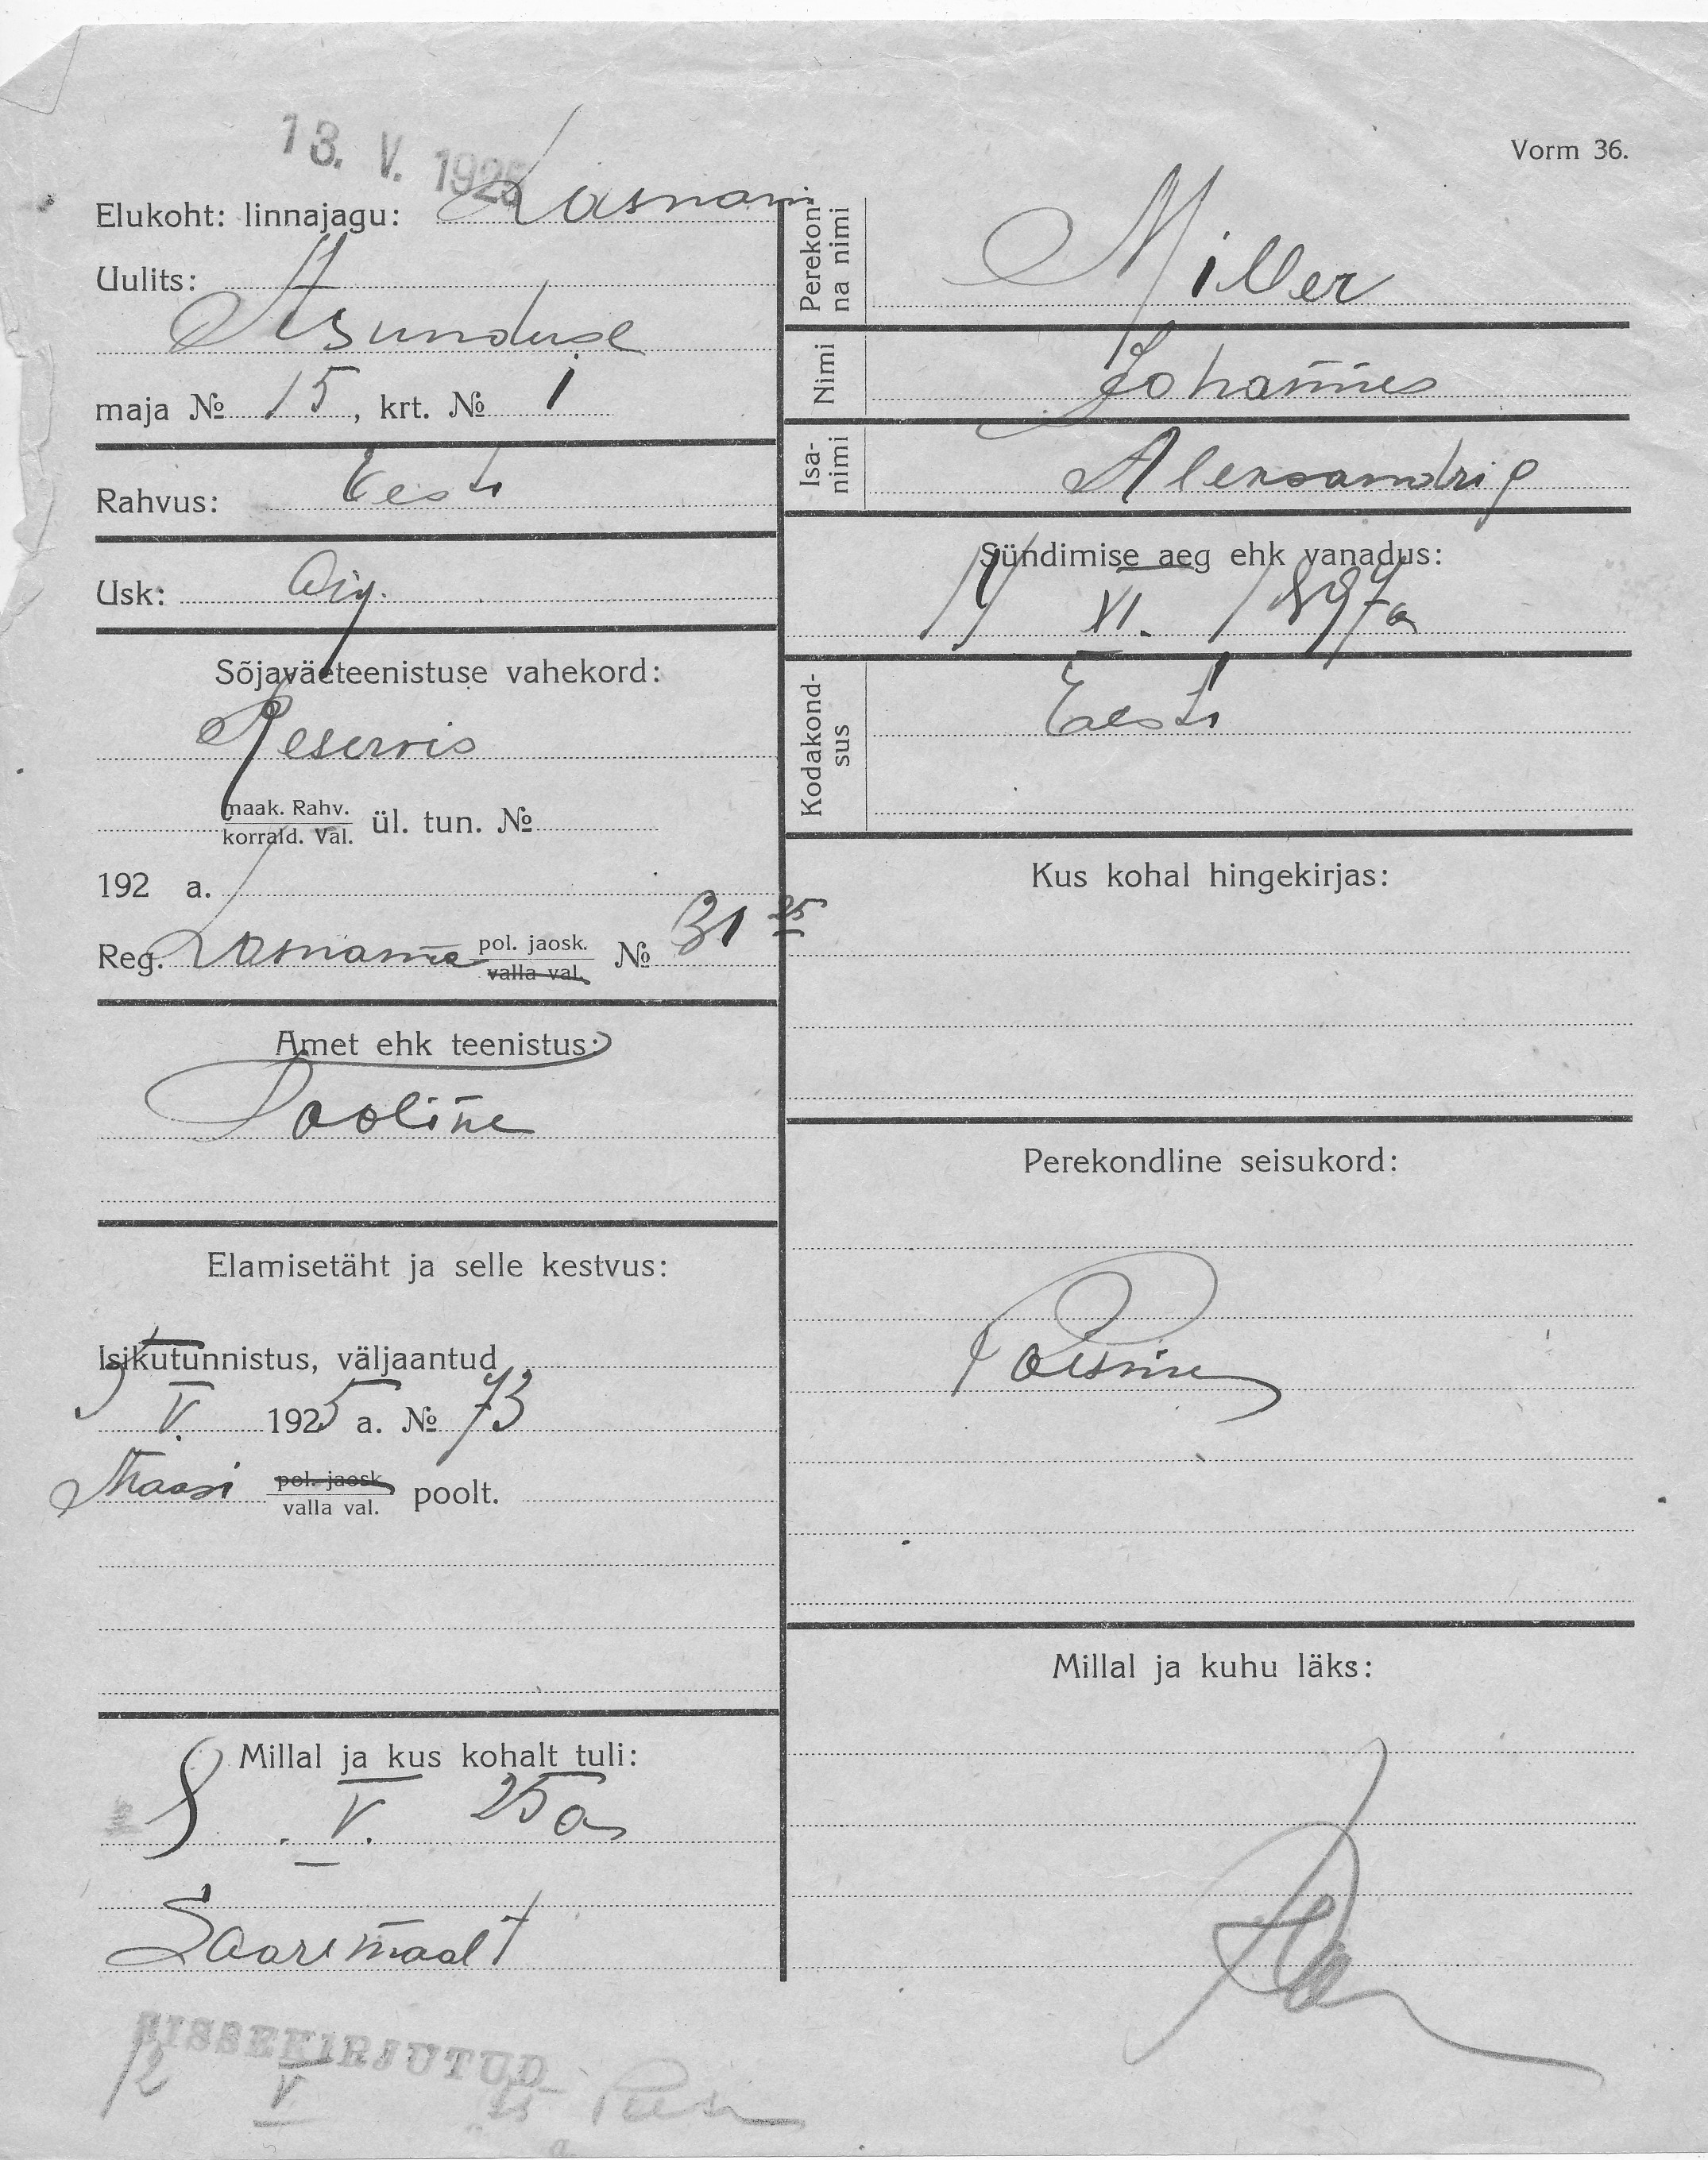 13. V. 1925
Vorm 36.
Elukoht: linnajagu: Lasnam
Uulits:
Asunduse
maja № 15, krt. № 1
Rahvus: Eesti
Usk: Õig.
Sõjaväeteenistuse vahekord:
Reservis
maak. Rahv.
korrald. Val. ül. tun. №
192 a.
Reg. Lasnamäe pol. jaosk. № 31 25
valla val.
Amet ehk teenistus:
Tööline
Elamisetäht ja selle kestvus:
Isikutunnistus, väljaantud
5 V. 1925 a. № 73
Maasi pol. jaosk. poolt.
valla val.
Millal ja kus kohalt tuli:
8. V. 25 a
Saaremaalt
Perekonna nimi
Miller
Nimi
Johannes
Isanimi
Aleksandri p
Sündimise aeg ehk vanadus:
11 XI. 1897 a
Kodakondsus
Eesti
Kus kohal hingekirjas:
Perekondline seisukord:
Poismees
Millal ja kuhu läks:
SISSEKIRJUTUD
12 V 25